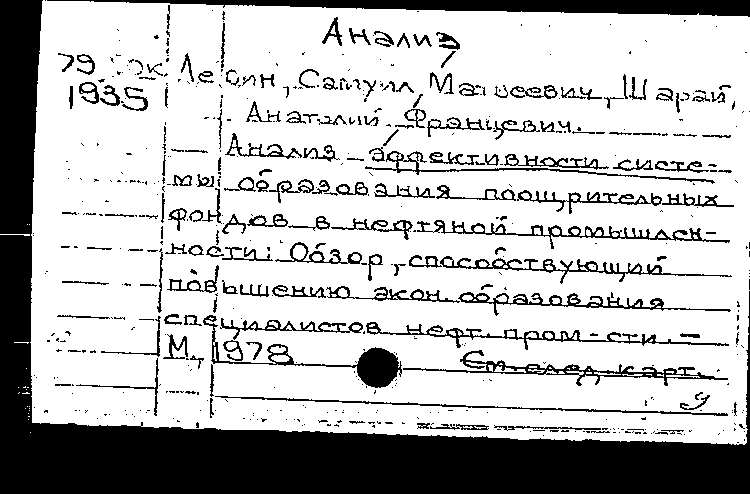 Анализ
79
1935
Самуил Матвеевич, Шарай,
Анатолий Францевич.
Анализ эффективности систе-
мы образования поощрительных
фондов в нефтяной промышлен-
ности: Обзор, способствующий
повышению экон. образования
специалистов нефт. пром-сти. –
М., 1978
См. след. карт.